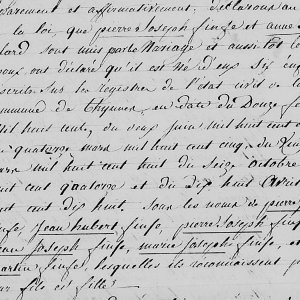 parément et affirmativement, déclarons au
la loi, que pierre Joseph finfe et anne
lard sont unis par le Mariage et aussi tôt le
poux ont déclaré qu'il est né d'eux six en
scrits sur les registres de l'état civil de la
ommune de thynnes, en date du Douze f
il huit cent, du deux juin mil huit cent
quatorze mars mil huit cent cinq, du Qu
mil huit cent huit du Seize octobre
it cent quatorze et du dix huit avril
it cent dix huit. Sous les noms de pierre
finfe, Jean hubert finfe, pierre Joseph finfe
Joseph finfe, marie Josephe finfe, et
artin finfe, lesquelles ils reconnaissent p
ur fils et fille